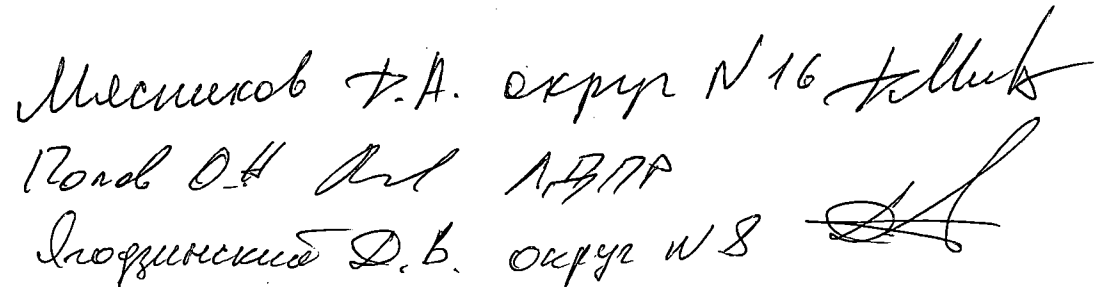 Мясников Д.А. округ N 16
Попов О.Н ЛДПР
Ягодзинский Д.В. округ N 8